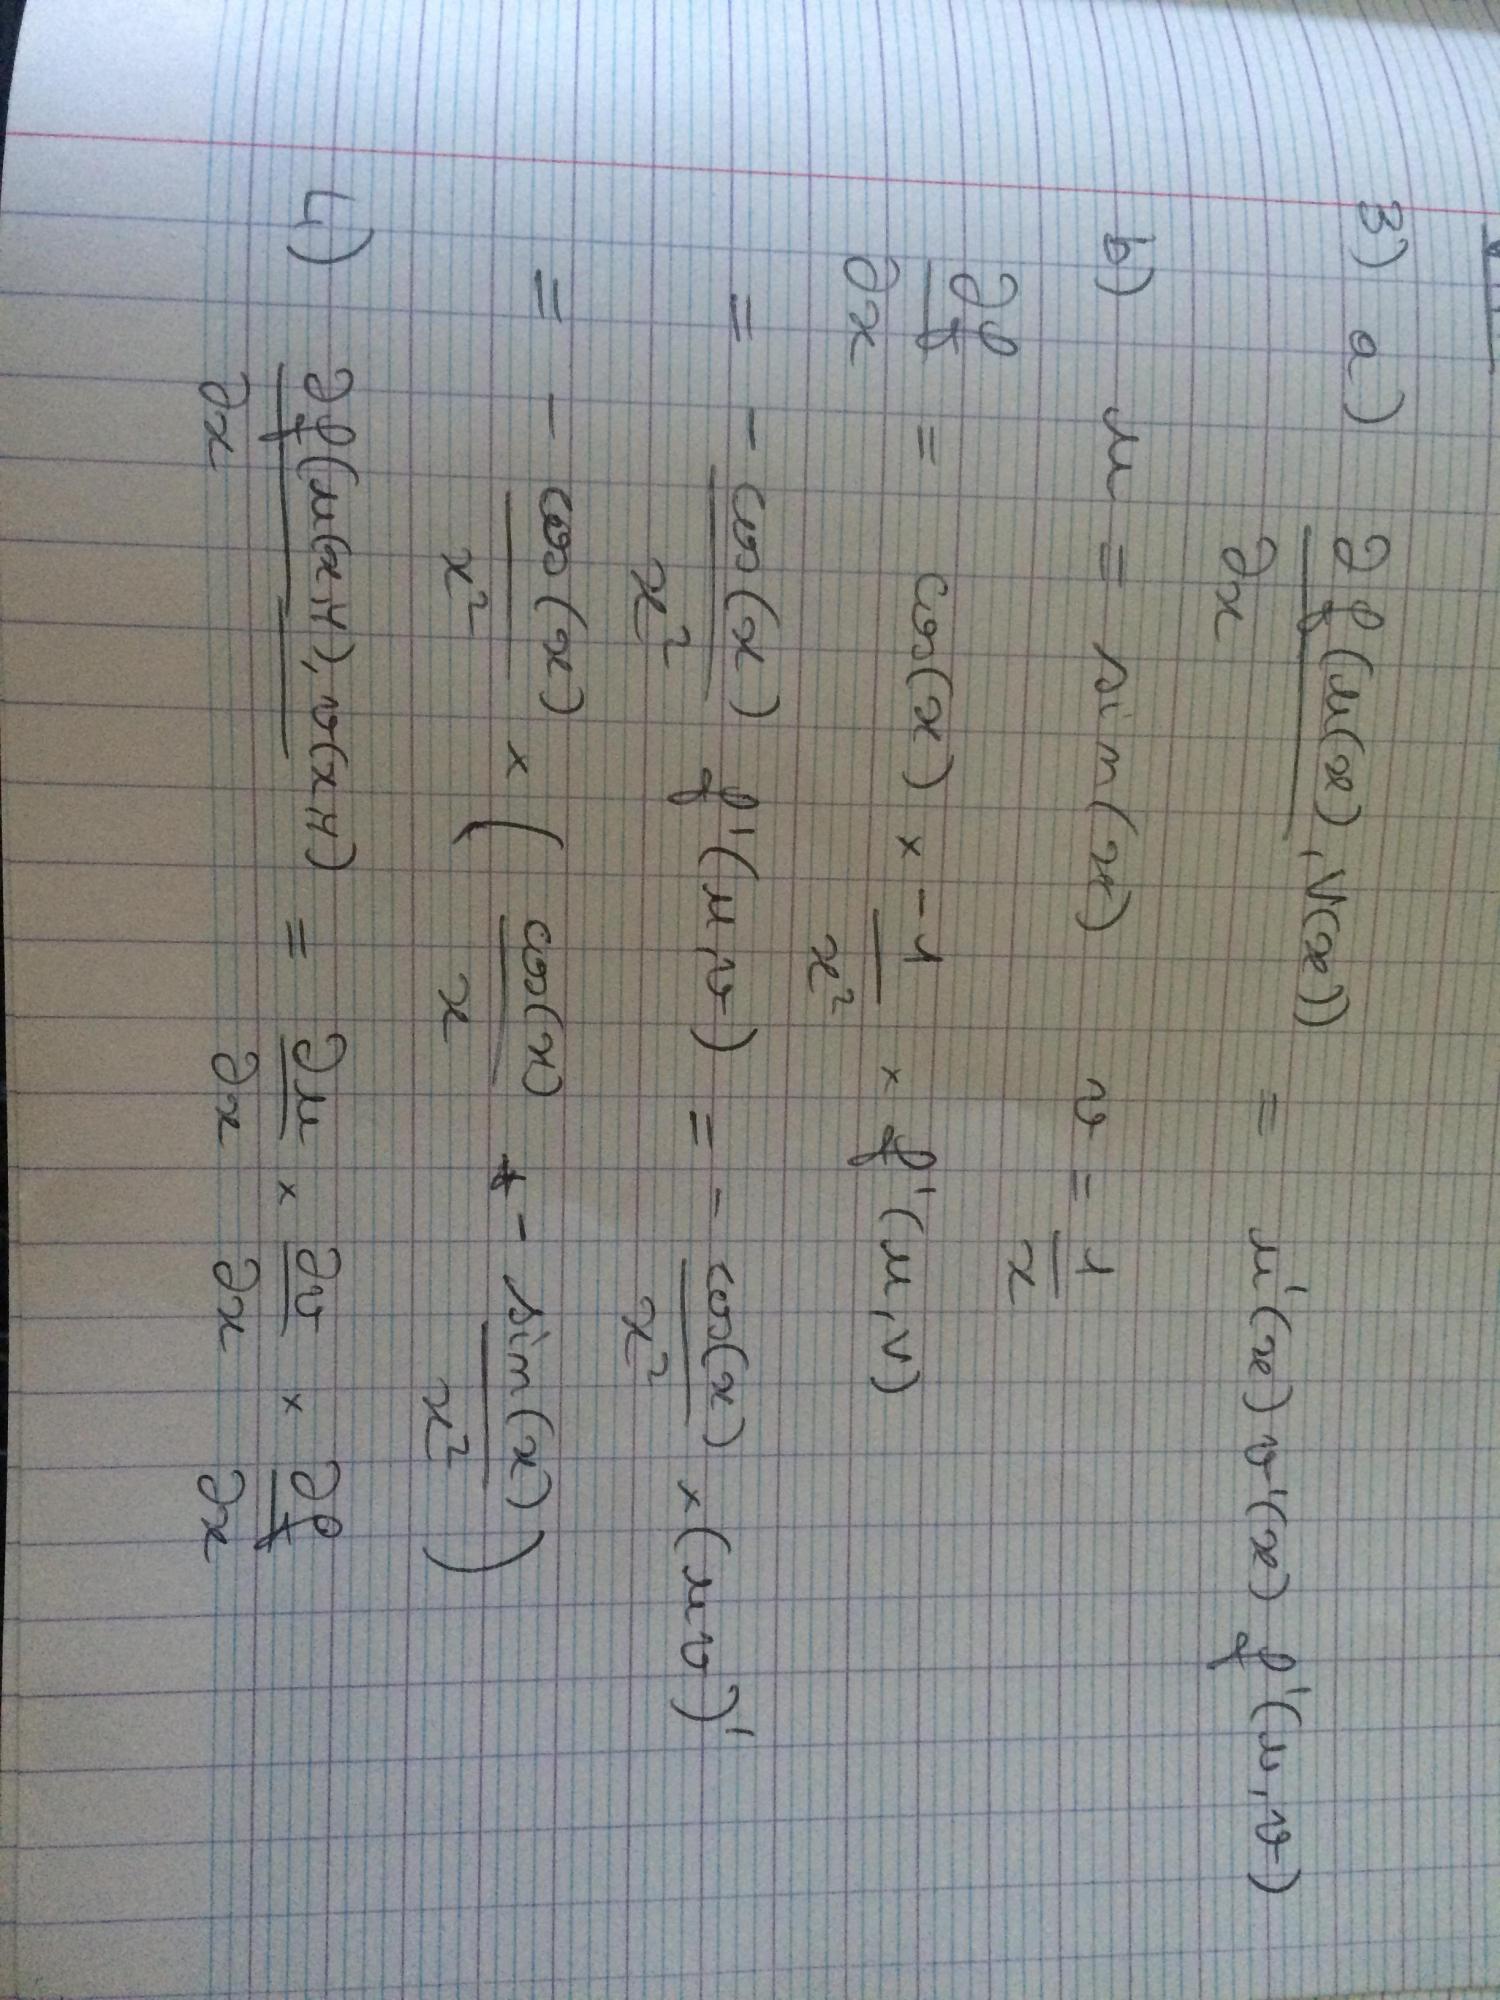 3) a) ∂f(u(x), v(x)) / ∂x = u'(x) v'(x) f'(u, v)
b) u = sin(x) v = 1/x
∂f/∂x = cos(x) × -1/x² × f'(u, v)
= - cos(x)/x² f'(u, v) = - cos(x)/x² × (uv)'
= - cos(x)/x² × ( cos(x)/x - sin(x)/x² )
4) ∂f(u(x,y), v(x,y)) / ∂x = ∂u/∂x × ∂v/∂x × ∂f/∂x